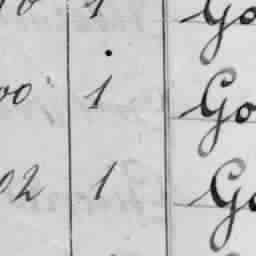 1 Go
00 1 Go
02 1 Go